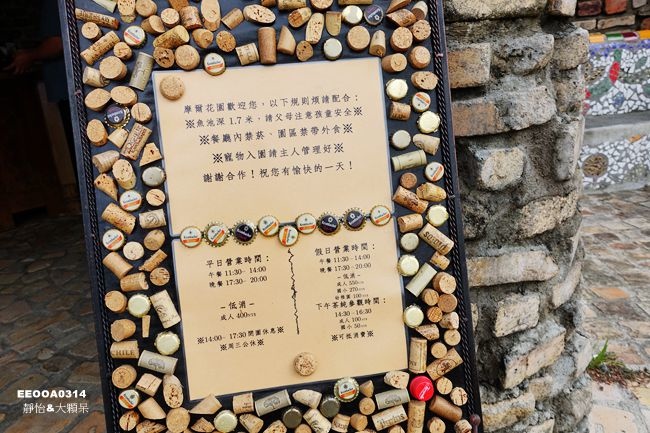 摩爾花園歡迎您，以下規則煩請配合：
※魚池深 1.7 米，請父母注意孩童安全※
※餐廳內禁菸、園區禁帶外食※
※寵物入園請主人管理好※
謝謝合作！祝您有愉快的一天！
平日營業時間：
午餐 11:30– 14:00
晚餐 17:30– 20:00
–低消–
成人 400NT$
※14:00– 17:30 閉園休息※
※周三公休※
假日營業時間：
午餐 11:30– 14:00
晚餐 17:30– 20:00
–低消–
成人 550NT$
國小 270NT$
幼稚園 100NT$
下午茶純參觀時間：
14:30– 16:30
成人 100NT$
國小 50NT$
※可抵消費※
CHILE
EEOOA0314
靜怡&大顆呆